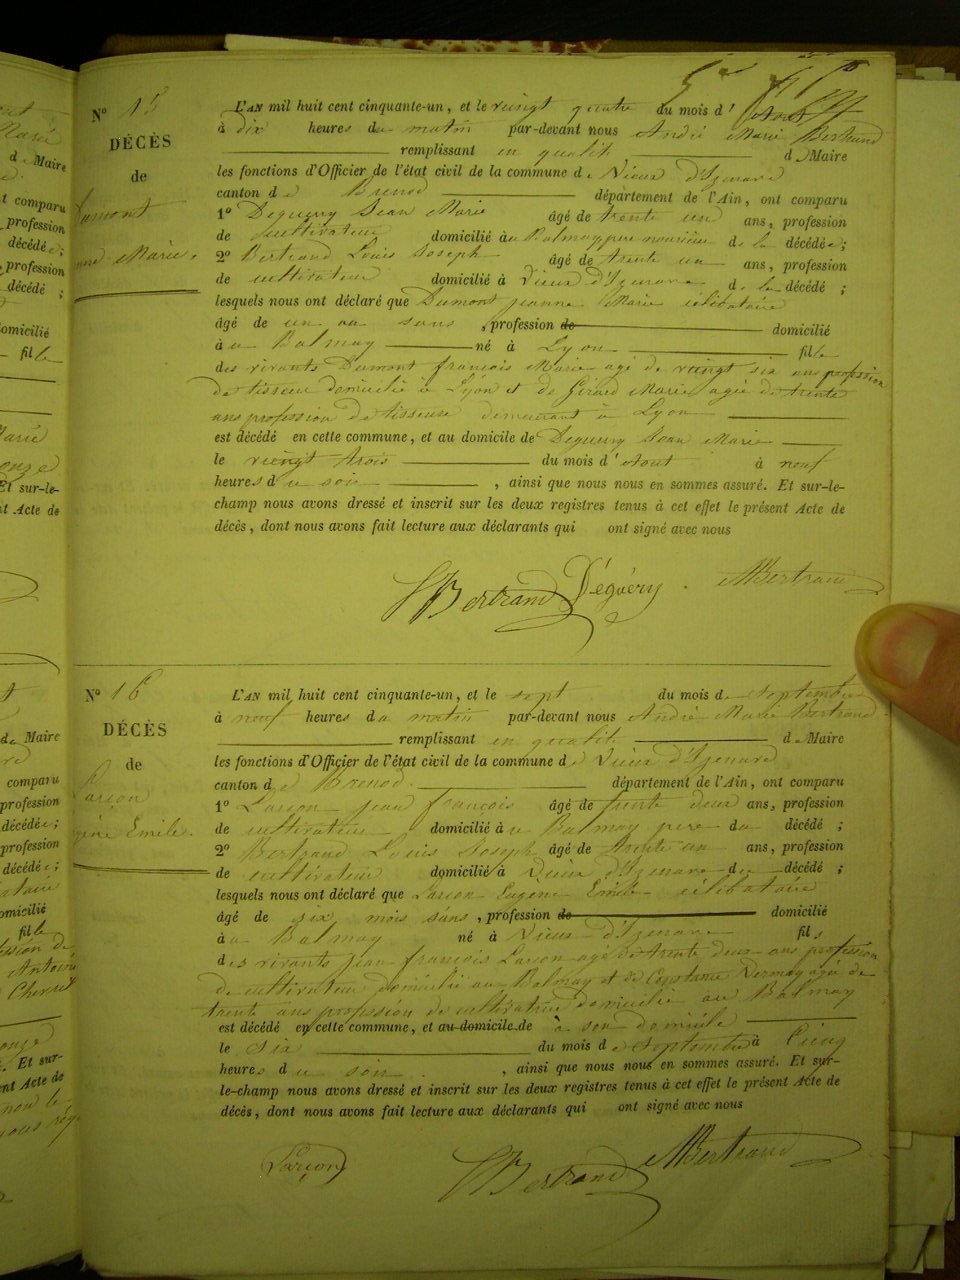 N° 15
DÉCÈS
de
Dumont
Marie
L'AN mil huit cent cinquante-un, et le vingt quatre du mois d'Aout
à dix heures du matin par-devant nous André Marie Bertrand
remplissant en qualité de Maire
les fonctions d'Officier de l'état civil de la commune de Vieux d'Izenave
canton de Brenod département de l'Ain, ont comparu
1° Deguerry Jean Marie âgé de trente un ans, profession
de cultivateur domicilié au Balmay père nourricier de la décédée;
2° Bertrand Louis Joseph âgé de trente un ans, profession
de cultivateur domicilié à Vieux d'Izenave de la décédée ;
lesquels nous ont déclaré que Dumont jeanne Marie célibataire
âgé de un an sans , profession de domicilié
à au Balmay né à Lyon fille
des vivants Dumont françois Marie agé de vingt six ans profession
de tisseur domicilié à Lyon et de Girard Marie agée de trente
ans profession de tisseuse demeurant à Lyon
est décédé en cette commune, et au domicile de Deguerry Jean Marie
le vingt trois du mois d'Aout à neuf
heures du soir , ainsi que nous nous en sommes assuré. Et sur-le-
champ nous avons dressé et inscrit sur les deux registres tenus à cet effet le présent Acte de
décès, dont nous avons fait lecture aux déclarants qui ont signé avec nous
LBertrand Déguéry AMBertrand
N° 16
DÉCÈS
de
Larçon
Emile.
L'AN mil huit cent cinquante-un, et le sept du mois de Septembre
à neuf heures du matin par-devant nous André Marie Bertrand
remplissant en qualité de Maire
les fonctions d'Officier de l'état civil de la commune de Vieux d'Izenave
canton de Brenod. département de l'Ain, ont comparu
1° Larçon jean françois âgé de trente deux ans, profession
de cultivateur domicilié à au Balmay père du décédé ;
2° Bertrand Louis Joseph âgé de trente un ans, profession
de cultivateur domicilié à Vieux d'Izenave du décédé ;
lesquels nous ont déclaré que Larçon Eugène Emile célibataire
âgé de six mois sans , profession de domicilié
à au Balmay né à Vieux d'Izenave fils
des vivants jean françois Larçon agé de trente deux ans profession
de cultivateur domicilié au Balmay et de agée de
trente ans profession de cultivatrice domiciliée au Balmay
est décédé en cette commune, et au domicile de à son domicile
le Six du mois de Septembre à Cinq
heures du soir , ainsi que nous nous en sommes assuré. Et sur-
le-champ nous avons dressé et inscrit sur les deux registres tenus à cet effet le présent Acte de
décès, dont nous avons fait lecture aux déclarants qui ont signé avec nous
Larçon LBertrand AMBertrand